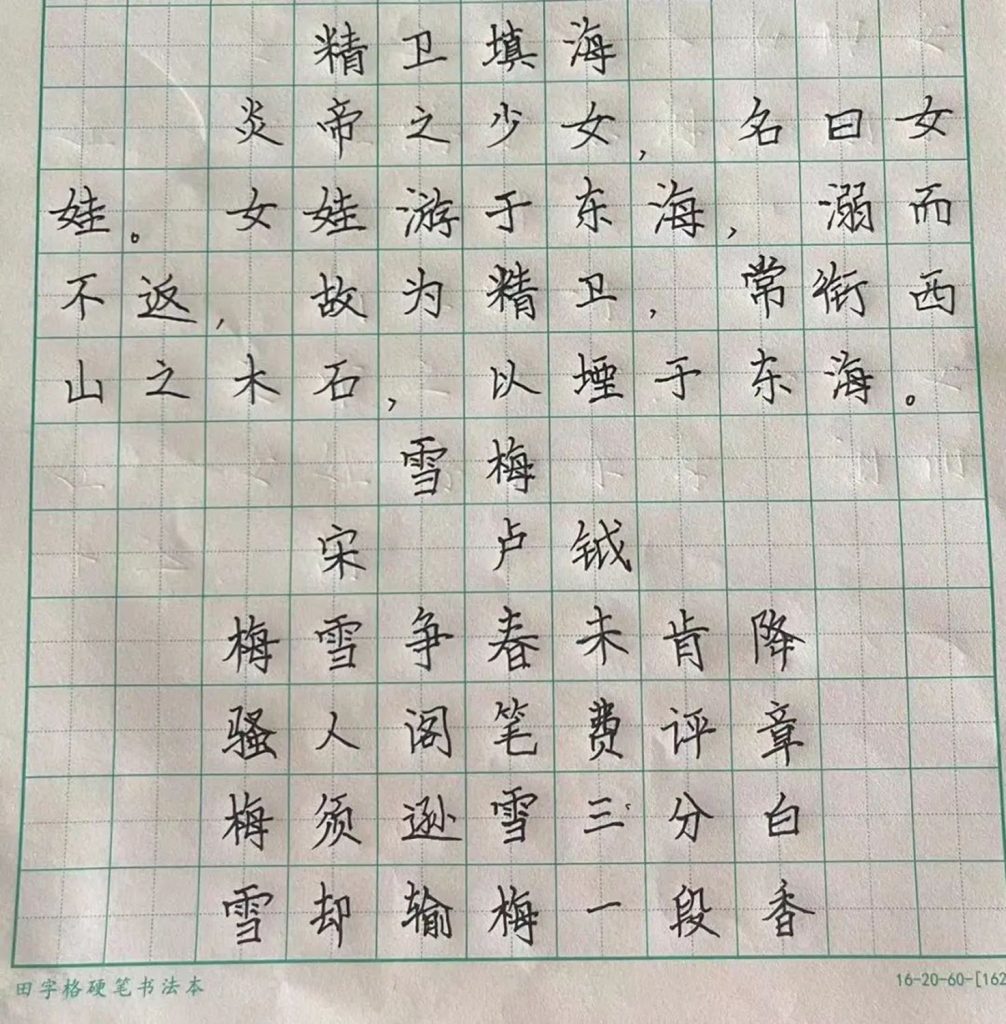 精卫填海
炎帝之少女，名曰女
娃。女娃游于东海，溺而
不返，故为精卫，常衔西
山之木石，以堙于东海。
雪梅
宋 卢钺
梅雪争春未肯降
骚人阁笔费评章
梅须逊雪三分白
雪却输梅一段香
田字格硬笔书法本
16-20-60-[162